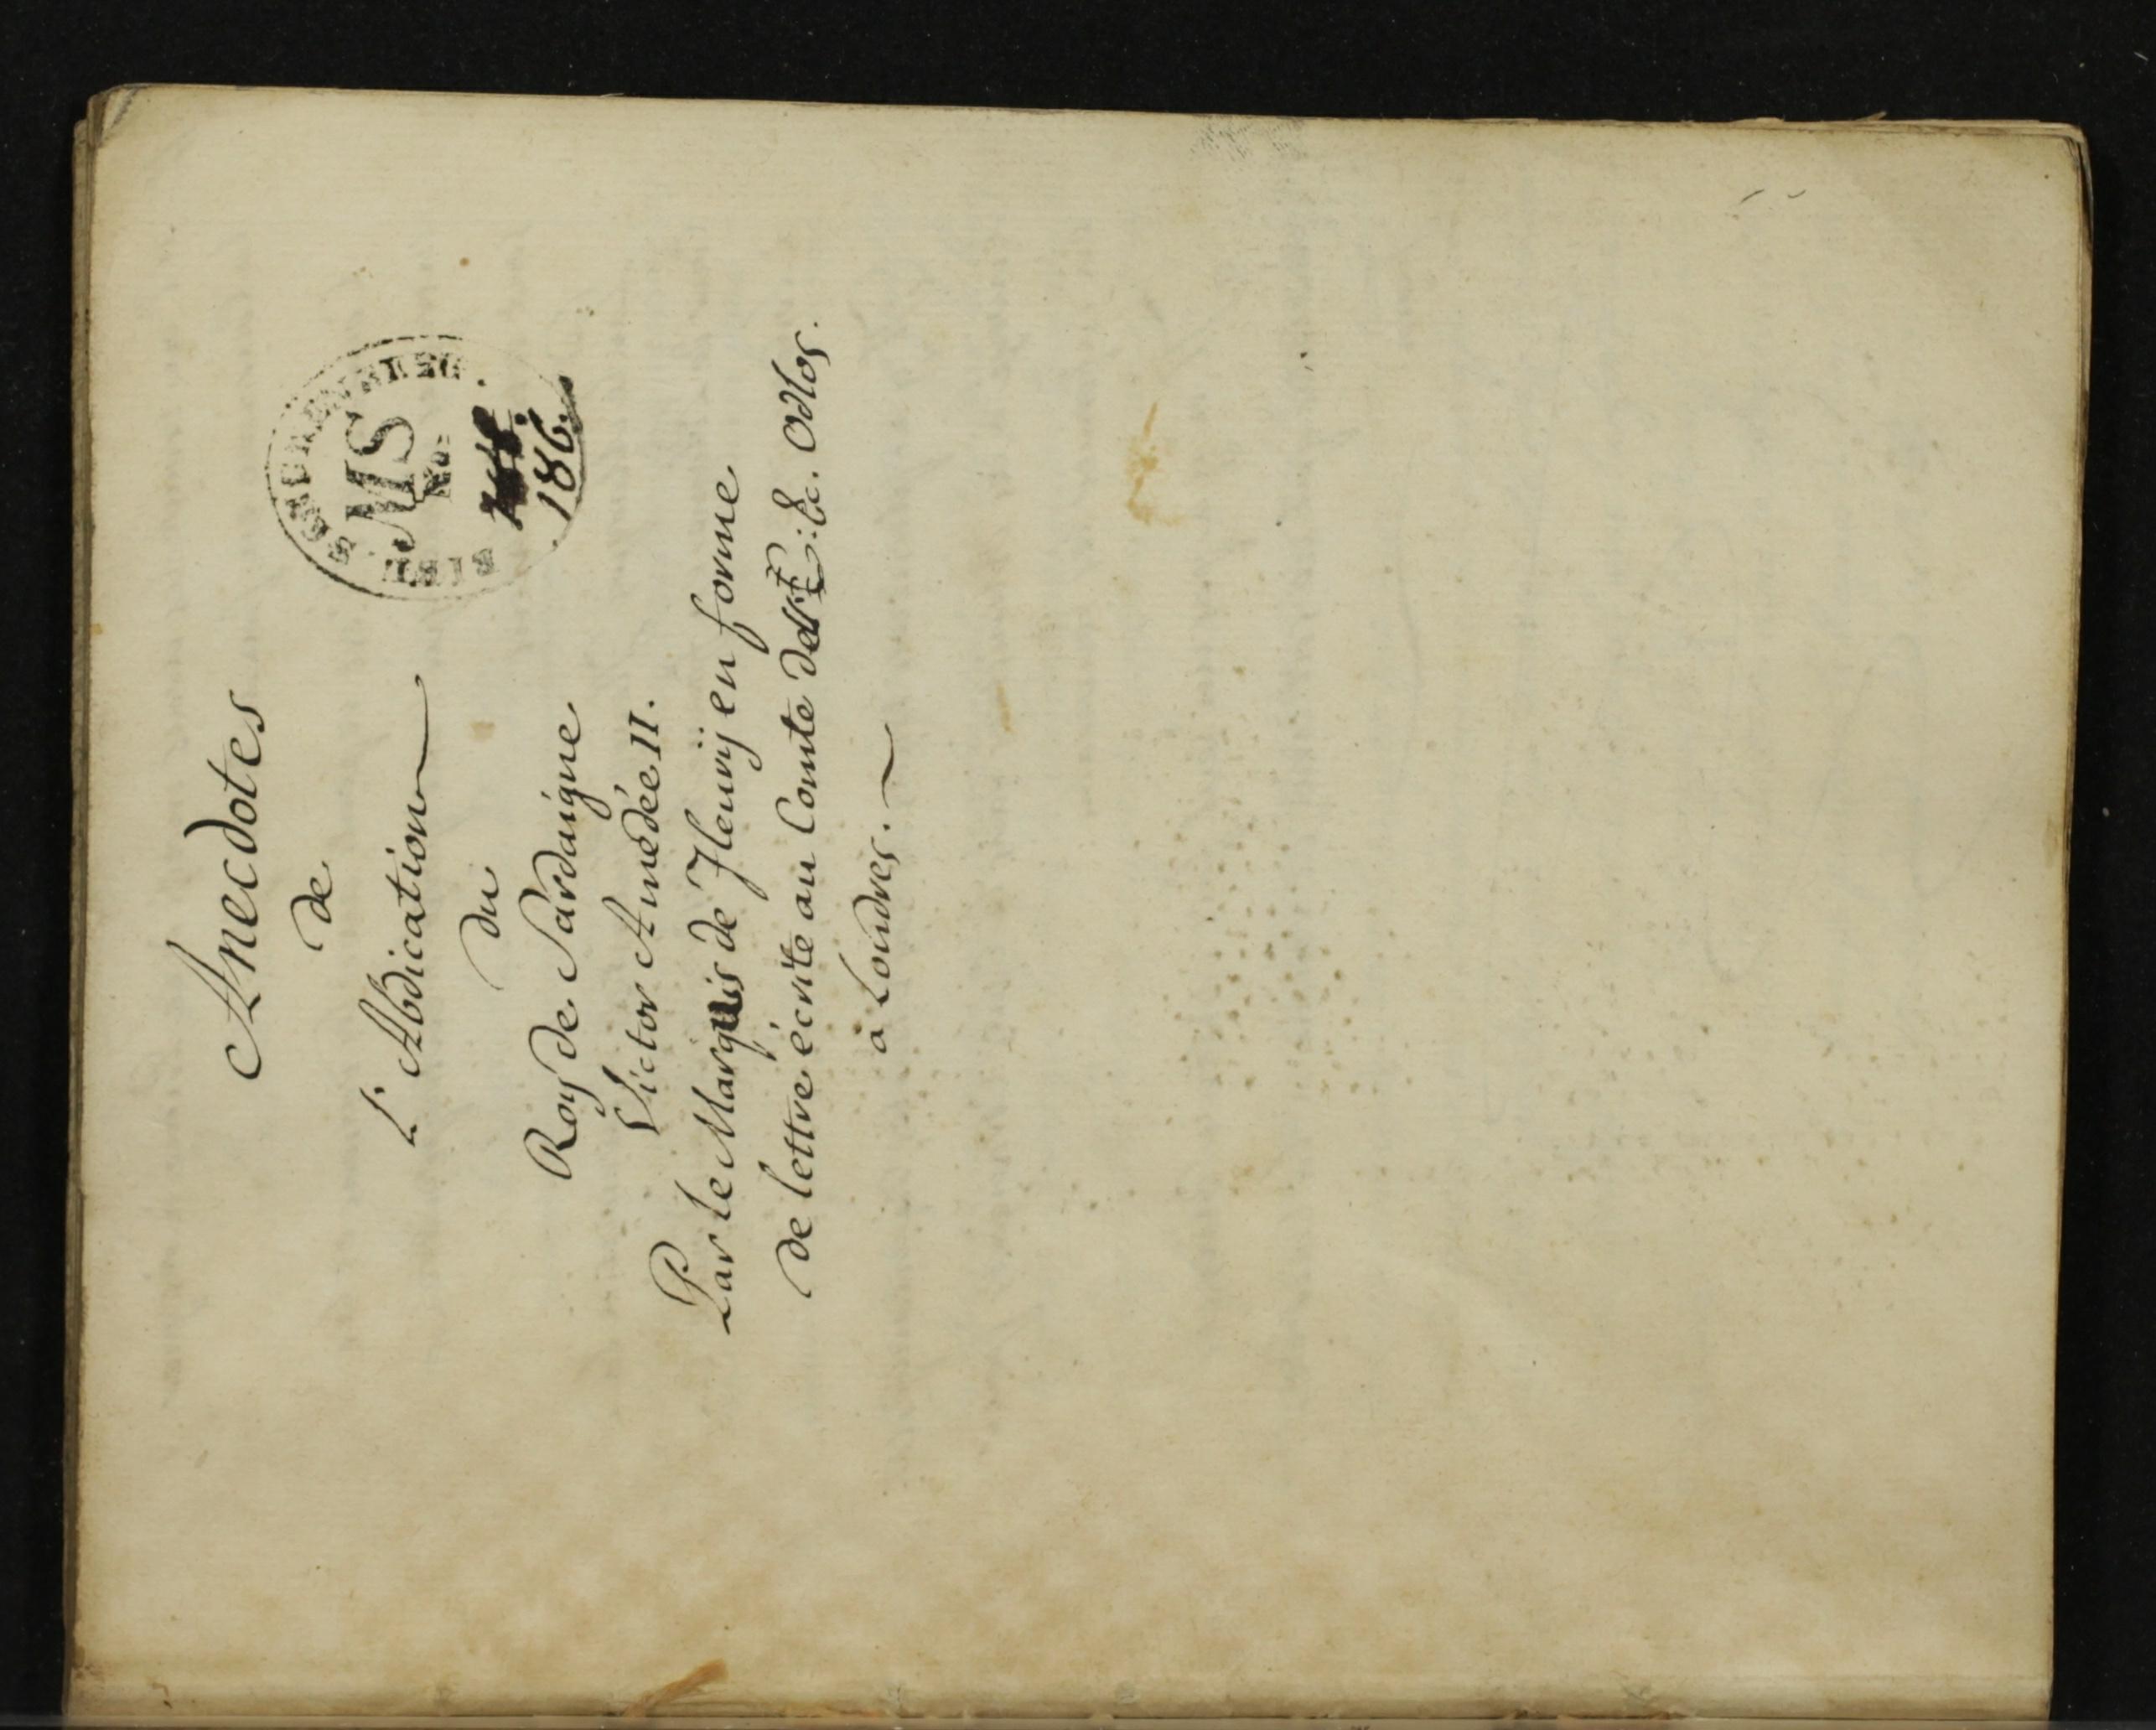 Anecdotes
de
L'Abdication
du
Roy de Sardaigne
Victor Amedée II.
Par le Marquis de Fleurÿ en forme
de lettre écrite au Comte de &c. Odlos.
a Londres.
BIBL. STAUBENBERG.
MS
No.
186.